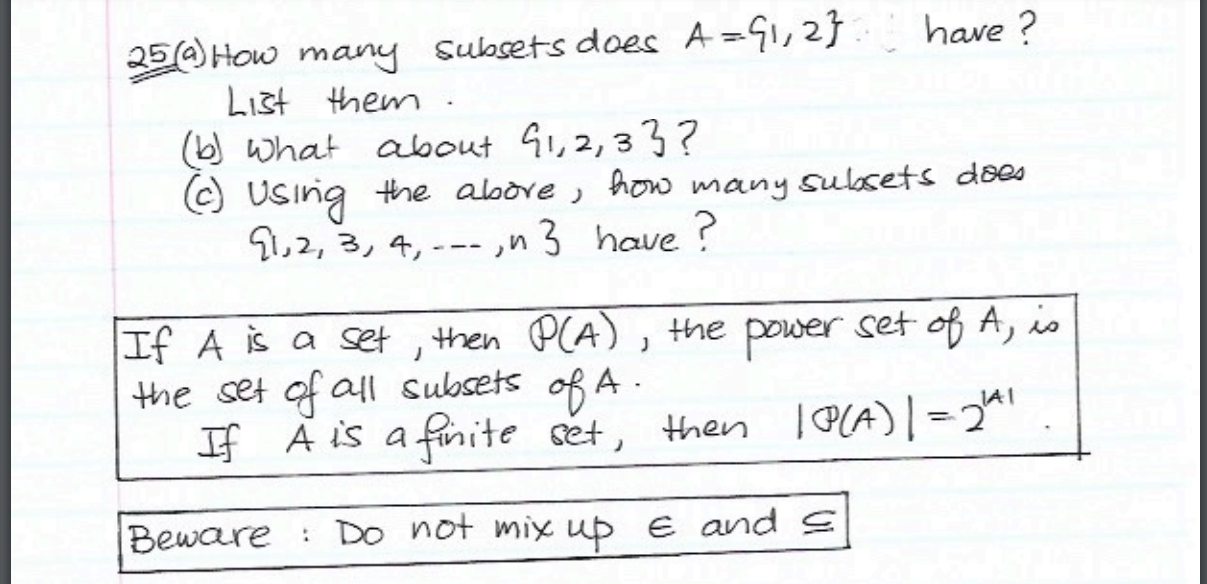 25(a) How many subsets does A = {1, 2} have ?
List them .
(b) What about {1, 2, 3 } ?
(c) Using the above , how many subsets does
{1, 2, 3, 4, ---- , n } have ?
If A is a set , then P(A) , the power set of A, is
the set of all subsets of A .
If A is a finite set, then |P(A)| = 2^|A| .
Beware : Do not mix up ∈ and ⊆